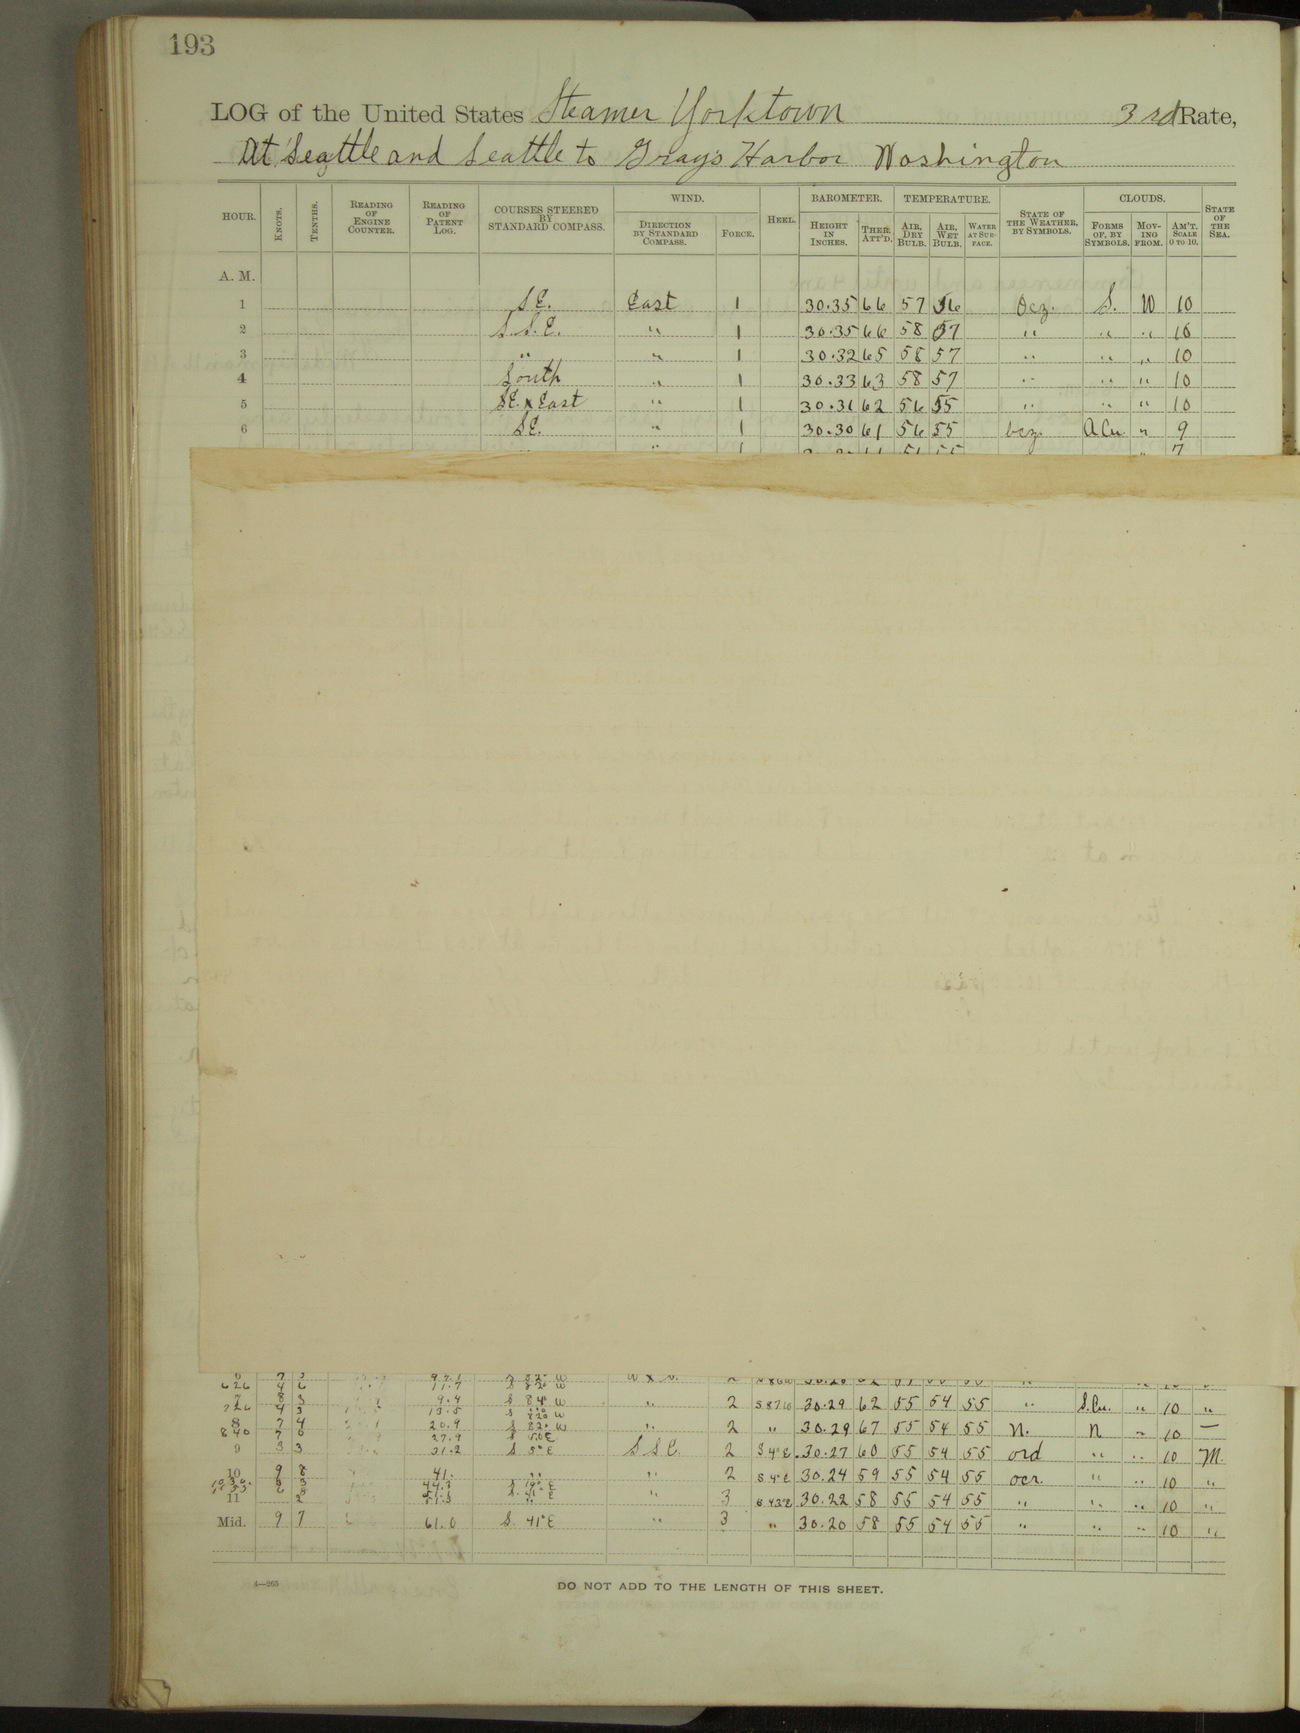 193
LOG of the United States Steamer Yorktown 3rd Rate,
At Seattle and Seattle to Grays Harbor Washington
HOUR. KNOTS. TENTHS. READING OF ENGINE COUNTER. READING OF PATENT LOG. COURSES STEERED BY STANDARD COMPASS. WIND. DIRECTION BY STANDARD COMPASS. FORCE. HEEL. BAROMETER. HEIGHT IN INCHES. THER. ATT'D. TEMPERATURE. AIR, DRY BULB. AIR, WET BULB. WATER AT SURFACE. STATE OF THE WEATHER, BY SYMBOLS. CLOUDS. FORMS OF, BY SYMBOLS. MOVING FROM. AM'T. SCALE 0 TO 10. STATE OF THE SEA.
A. M.
1 S.E. East 1 30.35 66 57 56 Ocz. S. W 10
2 S.S.E. " 1 30.35 66 58 57 " " " 10
3 " " 1 30.32 65 58 57 " " " 10
4 South " 1 30.33 63 58 57 " " " 10
5 SE. x East " 1 30.31 62 56 55 " " " 10
6 SE. " 1 30.30 61 56 55 bcz. A Cu. " 9
7
626 4 6 11.7 S 82° W
7 8 3 9.4 S 84° W " 2 30.29 62 55 54 55 " S.Cu. " 10 "
726 4 3 13.5
8 7 4 20.9 S 82° W " 2 " 30.29 67 55 54 55 N. N " 10 —
840 7 0 27.9
9 3 3 31.2 S 5° E S S E. 2 S 4° E. 30.27 60 55 54 55 ord " " 10 M.
10 9 8 41. " " 2 S 4° E 30.24 59 55 54 55 ocr. " " 10 "
11 2 51.3 " " 3 S 43° E 30.22 58 55 54 55 " " " 10 "
Mid. 9 7 61.0 S. 41° E " 3 " 30.20 58 55 54 55 " " " 10 "
4—265 DO NOT ADD TO THE LENGTH OF THIS SHEET.